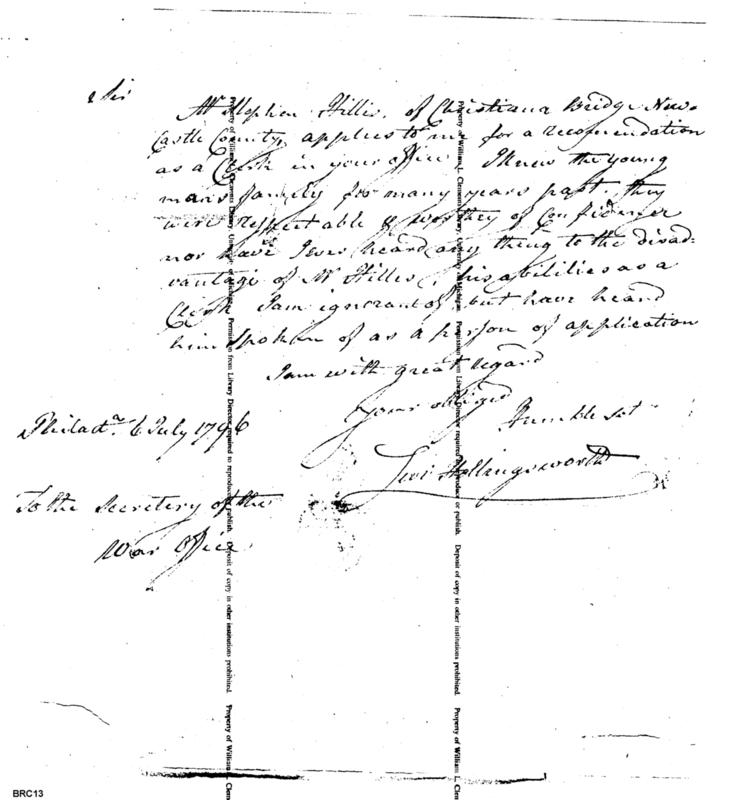 Sir
Mr. Stephen Hillis, of Christiana Bridge New-
Castle County, applies to me for a recomendation
as a Clerk in your office I knew the young
mans family for many years past. they
were respectable & worthey of Confidence
nor have I ever heard any thing to the disad-
vantage of Mr Hillis, his abilities as a
Clerk I am ignorant of but have heard
him spoken of as a person of application
I am with great regard
Your obliged
Humble Sst
Levi Hollingsworth
Philada. 6 July 1796
To the Secretary of the
War Office
Property of William L. Clements Library, University of Michigan. Permission from Library Director required to reproduce or publish. Deposit of copy in other institutions prohibited. Property of William L. Clem
Property of William L. Clements Library, University of Michigan. Permission from Library Director required to reproduce or publish. Deposit of copy in other institutions prohibited. Property of William L. Clem
BRC13